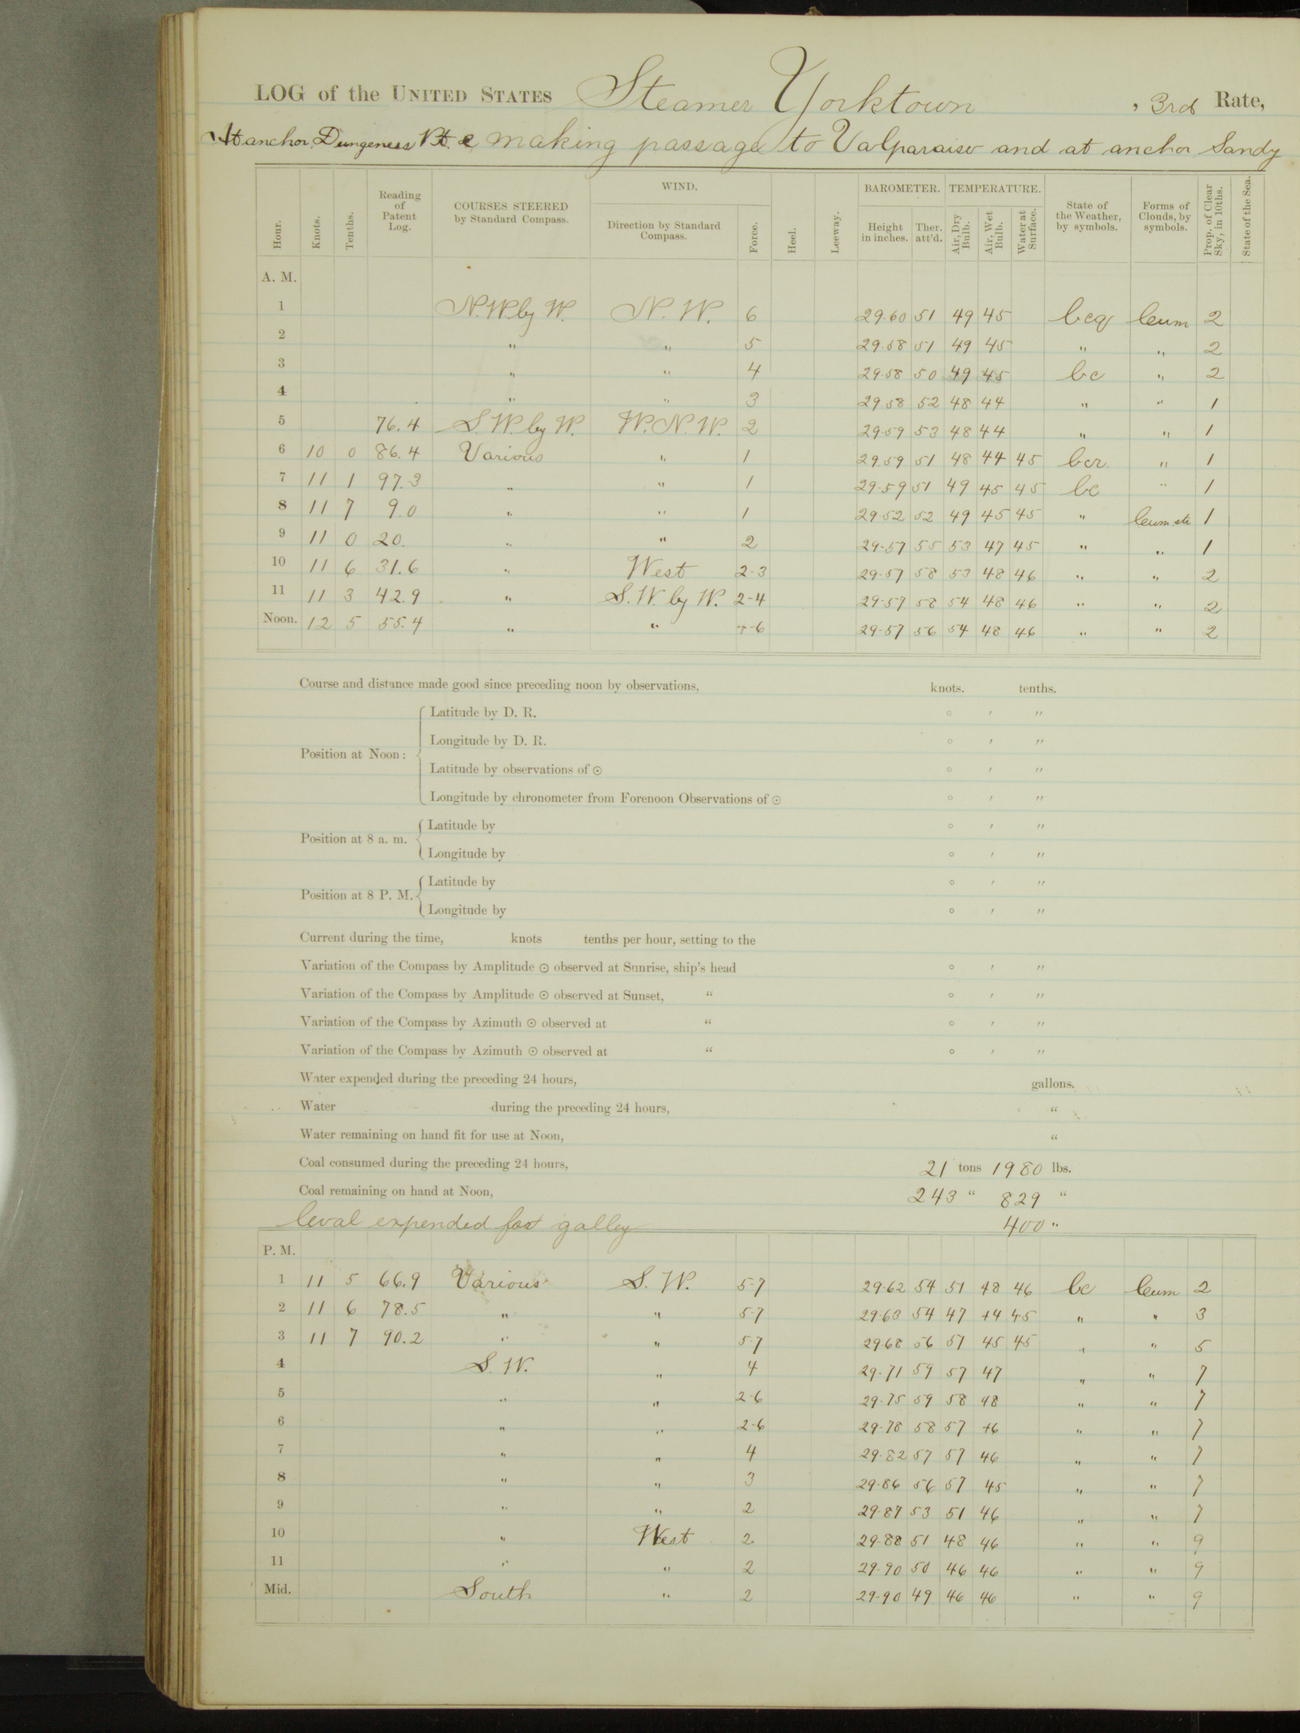 LOG of the UNITED STATES Steamer Yorktown , 3rd Rate,
At anchor, Dungeness Pt. & making passage to Valparaiso and at anchor Sandy
Hour. Knots. Tenths. Reading of Patent Log. COURSES STEERED by Standard Compass. WIND. Direction by Standard Compass. Force. Heel. Leeway. BAROMETER. Height in inches. Ther. att'd. TEMPERATURE. Air, Dry Bulb. Air, Wet Bulb. Water at Surface. State of the Weather, by symbols. Forms of Clouds, by symbols. Prop. of Clear Sky, in 10ths. State of the Sea.
A. M.
1 N.W. by W. N. W. 6 29.60 51 49 45 bcq Cum 2
2 " " 5 29.58 51 49 45 " " 2
3 " " 4 29.58 50 49 45 bc " 2
4 " " 3 29.58 52 48 44 " " 1
5 76.4 S W. by W. W. N W. 2 29.59 53 48 44 " " 1
6 10 0 86.4 Various " 1 29.59 51 48 44 45 bcr " 1
7 11 1 97.3 " " 1 29.59 51 49 45 45 bc " 1
8 11 7 9.0 " " 1 29.52 52 49 45 45 " 1
9 11 0 20. " " 2 29.57 55 53 47 45 " " 1
10 11 6 31.6 " West 2-3 29.57 58 53 48 46 " " 2
11 11 3 42.9 " S. W. by W. 2-4 29.57 58 54 48 46 " " 2
Noon. 12 5 55.4 " " 29.57 56 54 48 46 " " 2
Course and distance made good since preceding noon by observations, knots. tenths.
Position at Noon:
Latitude by D. R. ° ' "
Longitude by D. R. ° ' "
Latitude by observations of ☉ ° ' "
Longitude by chronometer from Forenoon Observations of ☉ ° ' "
Position at 8 a. m.
Latitude by ° ' "
Longitude by ° ' "
Position at 8 P. M.
Latitude by ° ' "
Longitude by ° ' "
Current during the time, knots tenths per hour, setting to the
Variation of the Compass by Amplitude ☉ observed at Sunrise, ship's head ° ' "
Variation of the Compass by Amplitude ☉ observed at Sunset, " ° ' "
Variation of the Compass by Azimuth ☉ observed at " ° ' "
Variation of the Compass by Azimuth ☉ observed at " ° ' "
Water expended during the preceding 24 hours, gallons.
Water during the preceding 24 hours, "
Water remaining on hand fit for use at Noon, "
Coal consumed during the preceding 24 hours, 21 tons 1980 lbs.
Coal remaining on hand at Noon, 243 " 829 "
Coal expended for galley 400 "
P. M.
1 11 5 66.9 Various S. W. 5-7 29.62 54 51 48 46 bc Cum 2
2 11 6 78.5 " " 5-7 29.63 54 47 44 45 " " 3
3 11 7 90.2 " " 5-7 29.68 56 51 45 45 " " 5
4 S. W. " 4 29.71 59 57 47 " " 7
5 " " 2-6 29.75 59 58 48 " " 7
6 " " 2-6 29.78 58 57 46 " " 7
7 " " 4 29.82 57 57 46 " " 7
8 " " 3 29.86 56 57 45 " " 7
9 " " 2 29.87 53 51 46 " " 7
10 " West 2 29.88 51 48 46 " " 9
11 " " 2 29.90 50 46 46 " " 9
Mid. South " 2 29.90 49 46 46 " " 9